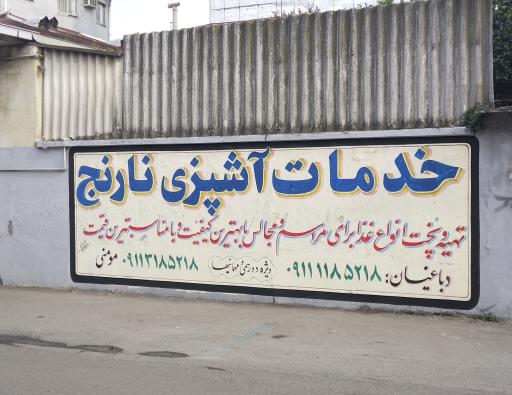 خدمات آشپزی نارنج
تهیه و پخت انواع غذا برای مراسم و مجالس با بهترین کیفیت و با مناسبترین قیمت
دباغیان: ۰۹۱۱۱۱۸۵۲۱۸ ویژه دورهمی و مهمانیها ۰۹۱۱۳۱۸۵۲۱۸ مومنی